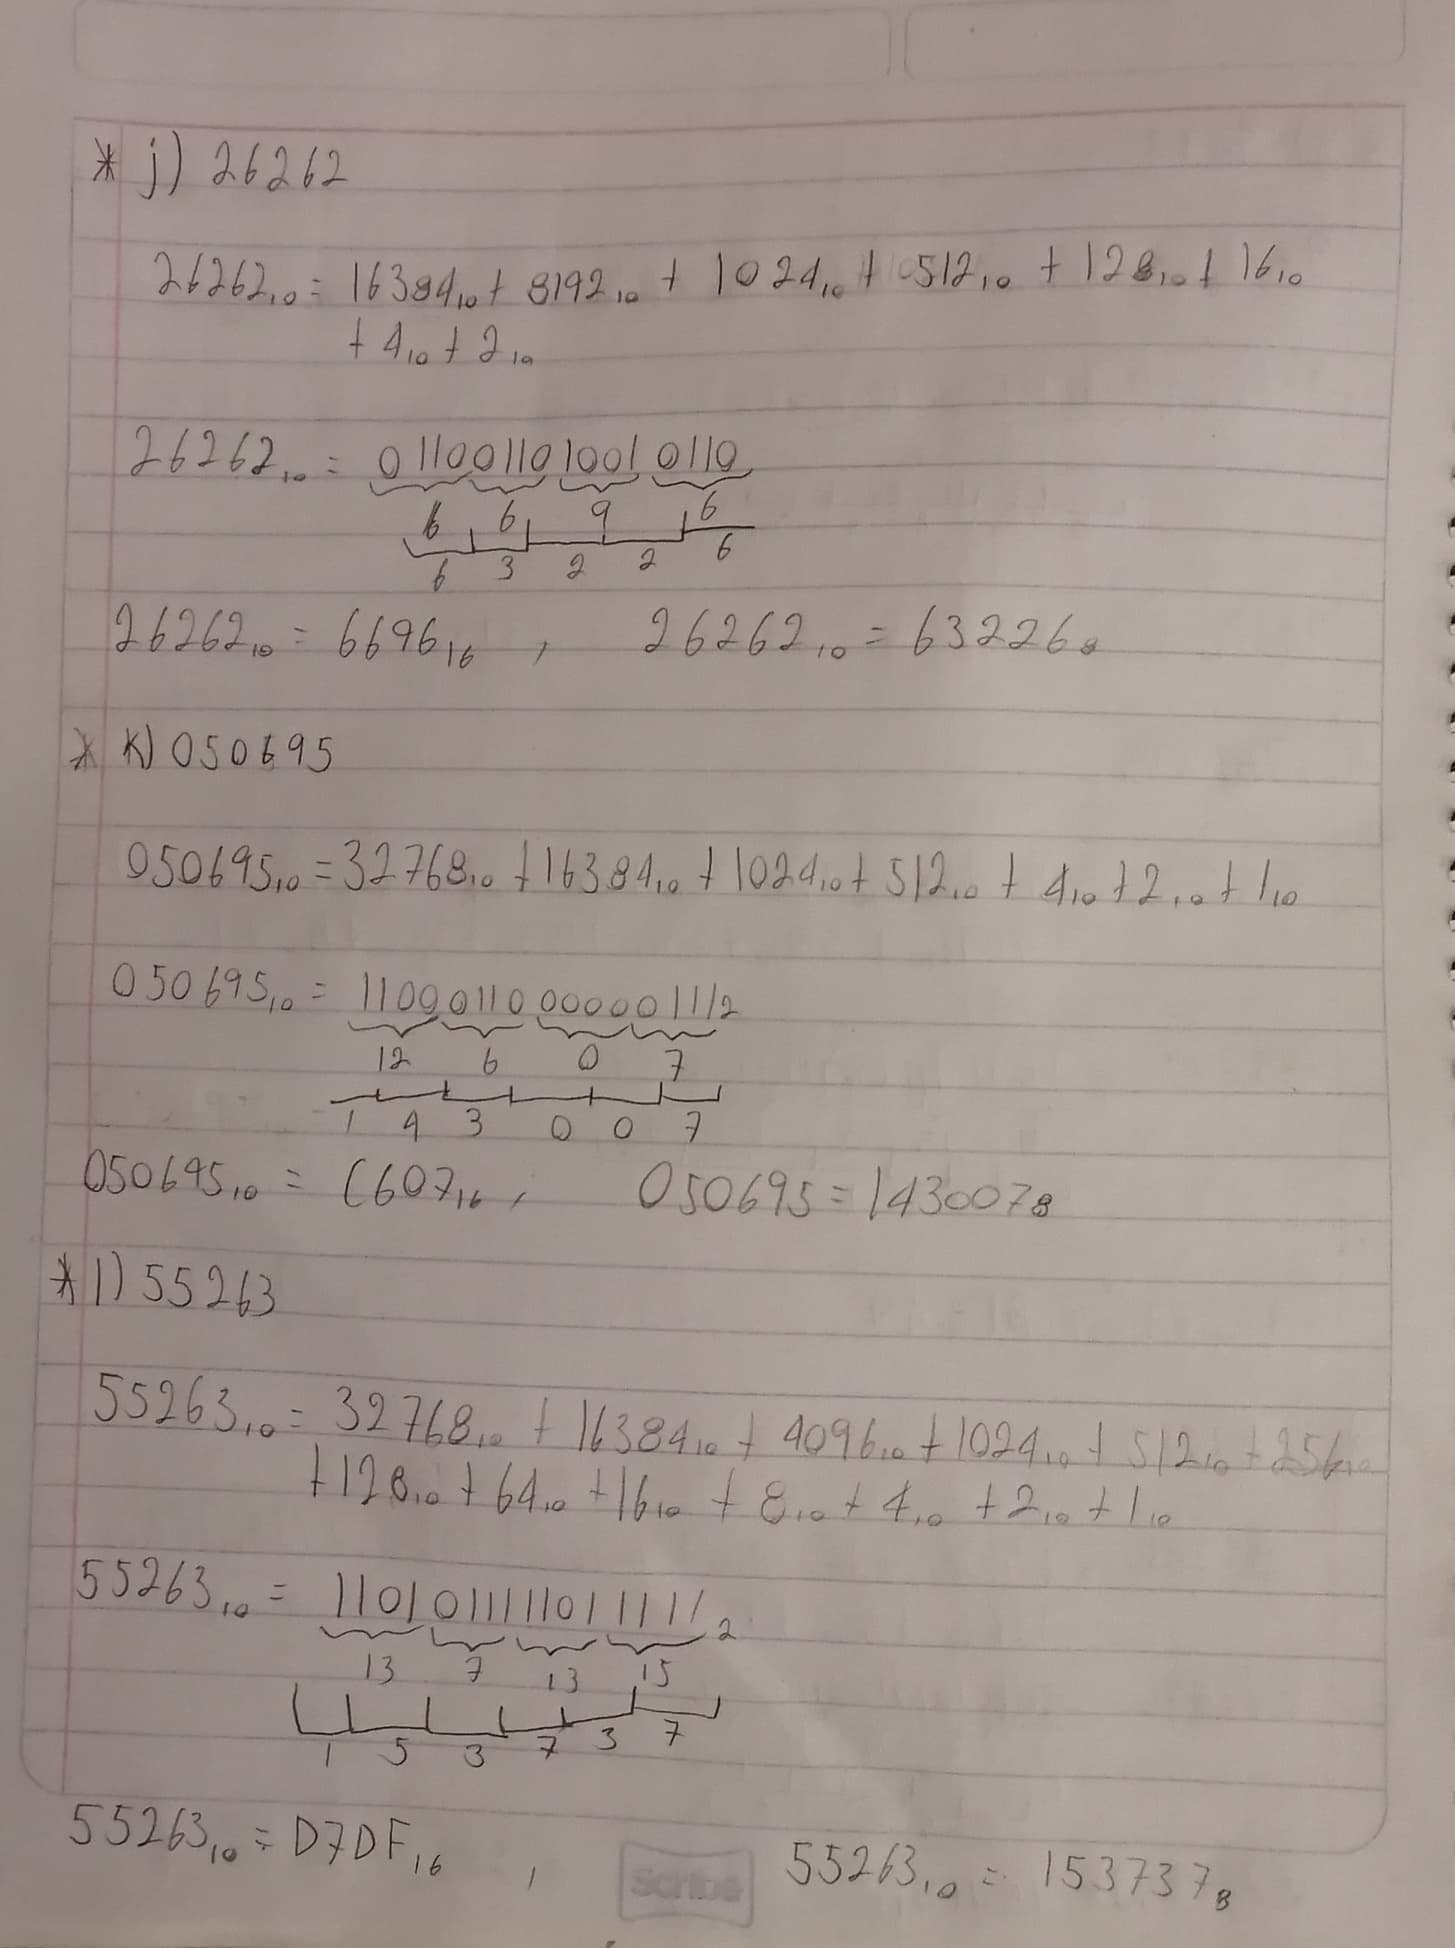 * j) 26262
26262₁₀ = 16384₁₀ + 8192₁₀ + 1024₁₀ + 512₁₀ + 128₁₀ + 16₁₀
+ 4₁₀ + 2₁₀
26262₁₀ = 0110011010010110
6 6 9 6
6 3 2 2 6
26262₁₀ = 6696₁₆ , 26262₁₀ = 63226₈
* K) 050695
050695₁₀ = 32768₁₀ + 16384₁₀ + 1024₁₀ + 512₁₀ + 4₁₀ + 2₁₀ + 1₁₀
050695₁₀ = 1100011000000111₂
12 6 0 7
1 4 3 0 0 7
050695₁₀ = C607₁₆ , 050695 = 143007₈
* l) 55263
55263₁₀ = 32768₁₀ + 16384₁₀ + 4096₁₀ + 1024₁₀ + 512₁₀ + 256₁₀
+ 128₁₀ + 64₁₀ + 16₁₀ + 8₁₀ + 4₁₀ + 2₁₀ + 1₁₀
55263₁₀ = 1101011111011111₂
13 7 13 15
1 5 3 7 3 7
55263₁₀ = D7DF₁₆ , 55263₁₀ = 153737₈
Scribe